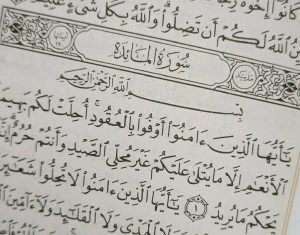 كانوا إخوة رجا
ٱللَّهُ لَكُمْ أَن تَضِلُّوا۟ وَٱللَّهُ بِكُلِّ شَىْءٍ عَلِيمٌ
سُورَةُ المَائِدَةِ
بِسْمِ ٱللَّهِ ٱلرَّحْمَٰنِ ٱلرَّحِيمِ
يَٰٓأَيُّهَا ٱلَّذِينَ ءَامَنُوٓا۟ أَوْفُوا۟ بِٱلْعُقُودِ أُحِلَّتْ لَكُم بَهِيمَةُ
ٱلْأَنْعَٰمِ إِلَّا مَا يُتْلَىٰ عَلَيْكُمْ غَيْرَ مُحِلِّى ٱلصَّيْدِ وَأَنتُمْ حُرُمٌ إِنَّ
يَحْكُمُ مَا يُرِيدُ ١ يَٰٓأَيُّهَا ٱلَّذِينَ ءَامَنُوا۟ لَا تُحِلُّوا۟ شَعَٰٓئِرَ
وَلَا ٱلْهَدْىَ وَلَا ٱلْقَلَٰٓئِدَ وَلَآ ءَآمِّينَ